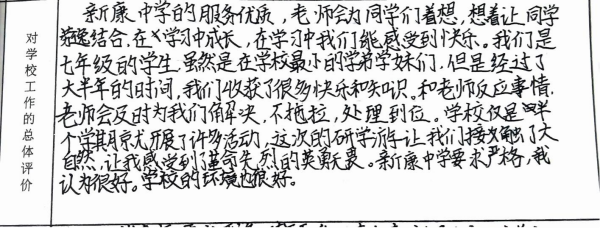 对学校工作的总体评价
新康中学的服务优质，老师会为同学们着想，想着让同学
劳逸结合，在学习中成长，在学习中我们能感受到快乐。我们是
七年级的学生，虽然是在学校最小的学弟学妹们，但是经过了
大半年的时间，我们收获了很多快乐和知识。和老师反应事情，
老师会及时为我们解决，不拖拉，处理到位。学校仅是半
个学期就开展了许多活动，这次的研学游让我们接触了大
自然，让我感受到了革命先烈的英勇无畏。新康中学要求严格，我
认为很好。学校的环境也很好。